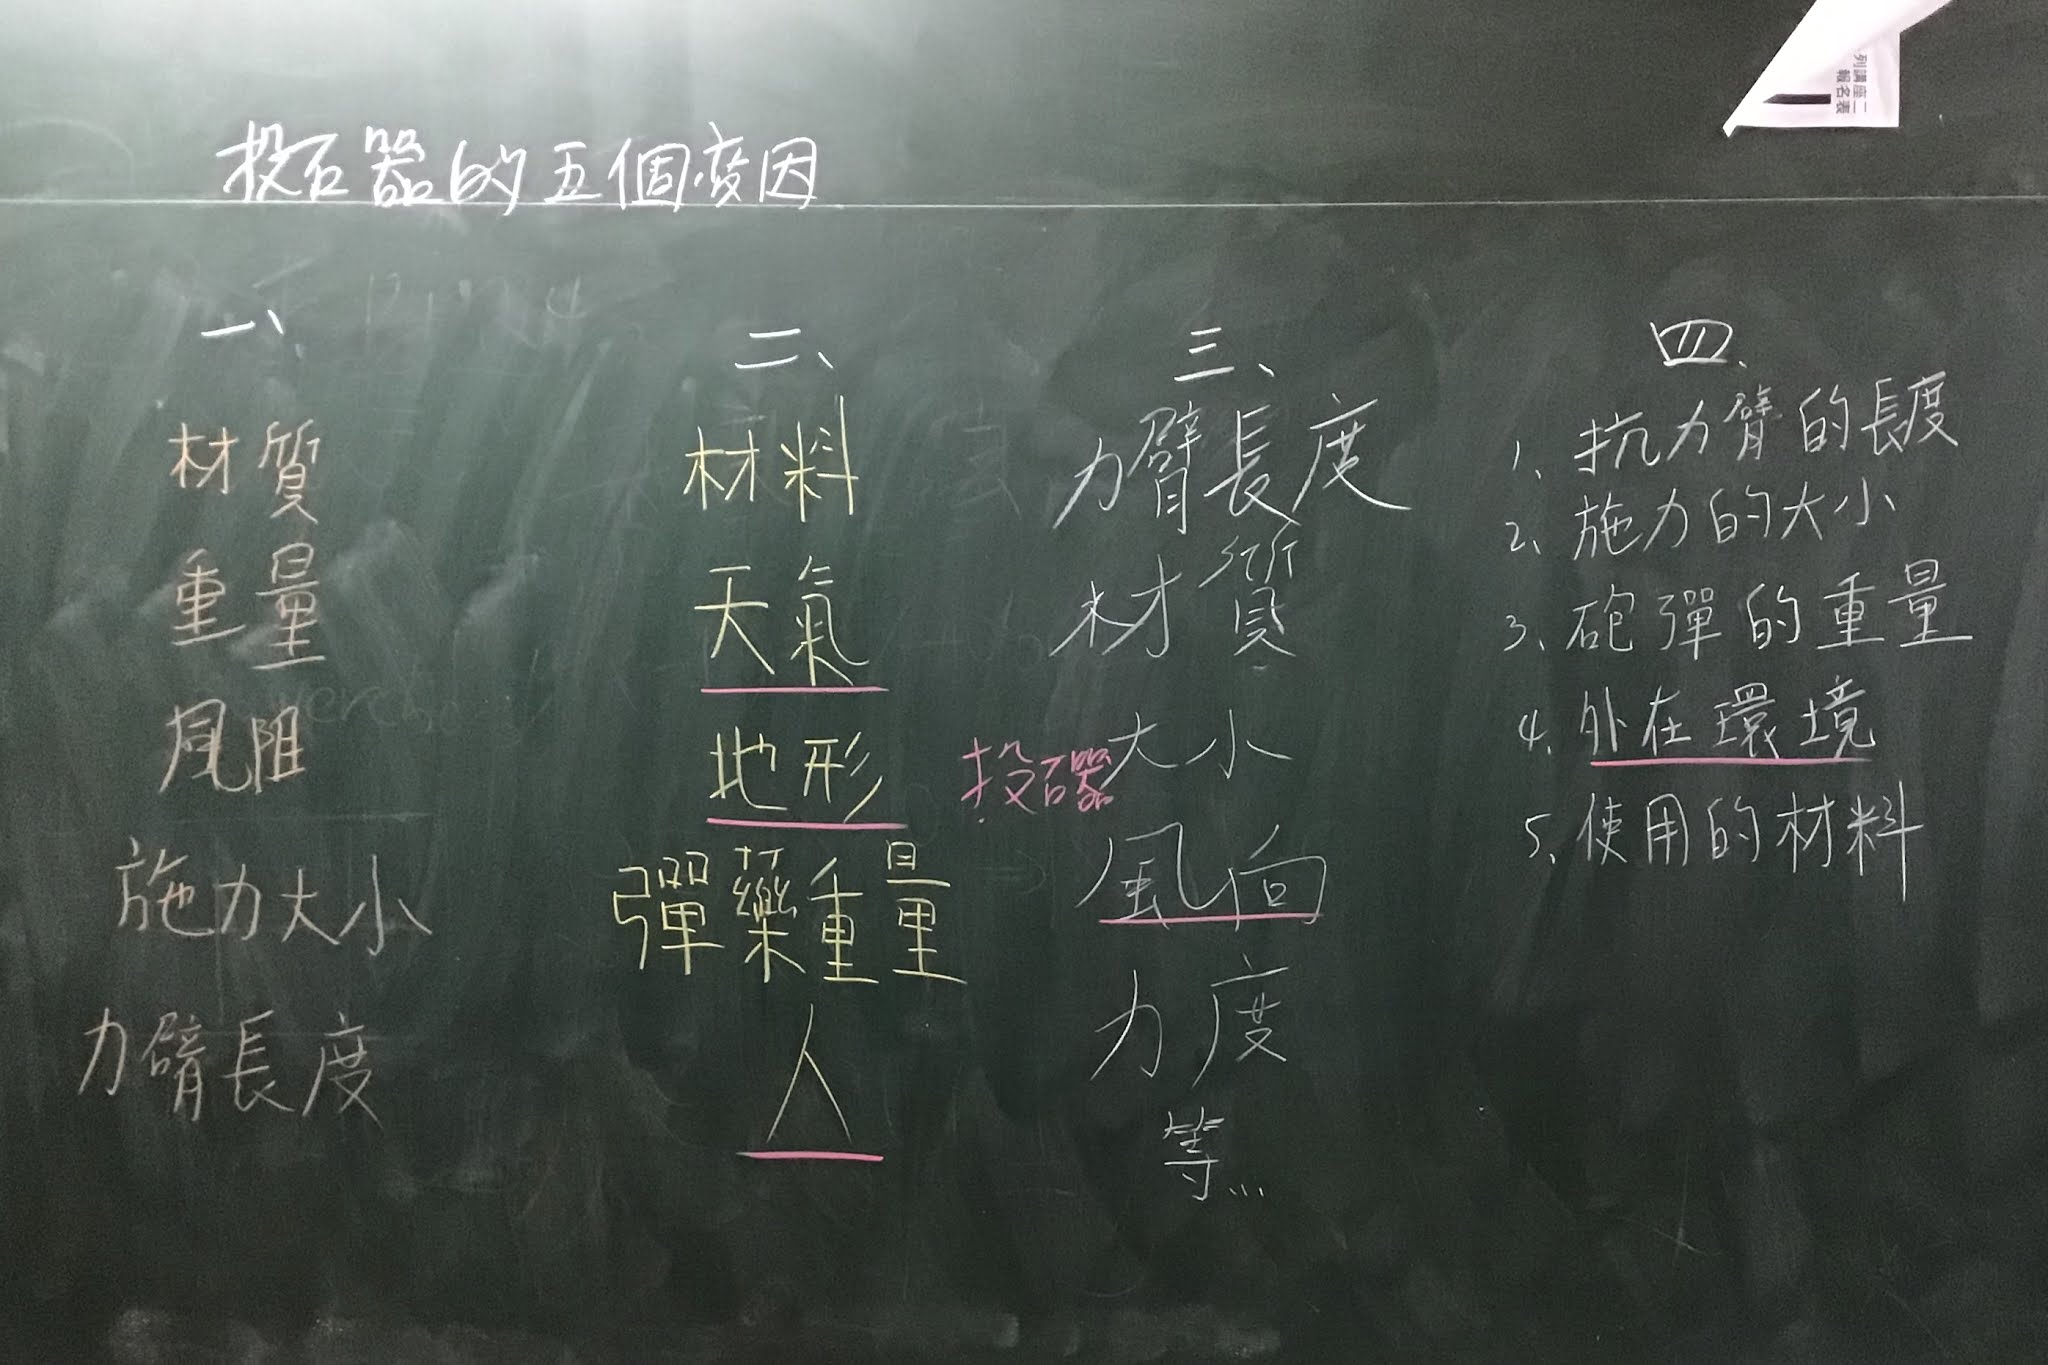 投石器的五個变因
一、
材質
重量
風阻
施力大小
力臂長度
二、
材料
天氣
地形
彈藥重量
人
三、
力臂長度
材質
投石器大小
風向
力度
等...
四、
1、抗力臂的長度
2、施力的大小
3、砲彈的重量
4、外在環境
5、使用的材料
列講座二
報名表